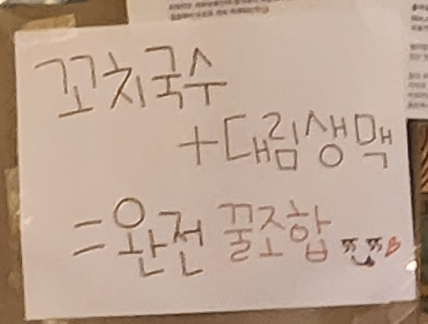 꼬치국수
+대림생맥
=완전 꿀조합